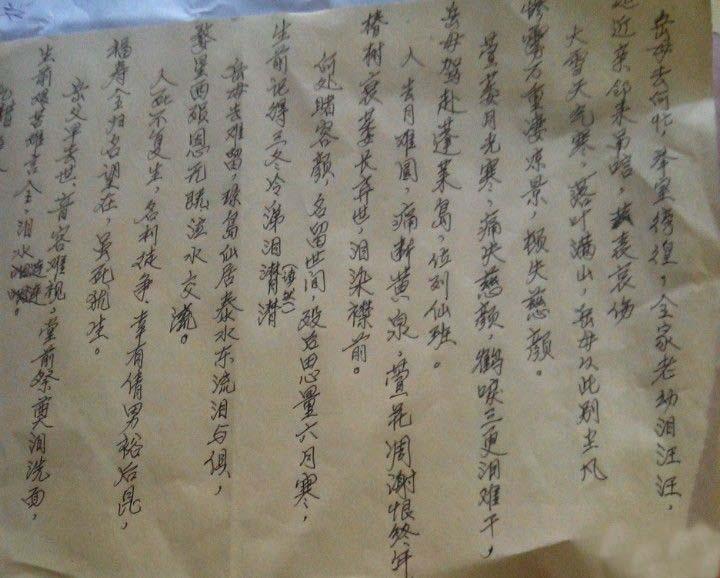 岳母去何忙,举室徬徨,全家老幼泪汪汪,
近亲邻来吊唁,表哀伤
大雪天气寒,落叶满山,岳母以此别尘凡
万重凄凉景,顿失慈颜。
萱萎月光寒,痛失慈颜,鹤唳三更泪难干,
岳母驾赴蓬莱岛,位列仙班。
人去月难圆,痛断黄泉,萱花凋谢恨终年
椿树哀萎长弃世,泪染襟前。
何处睹容颜,名留世间,殁后思量六月寒,
生前记得三冬冷,涕泪潸潸
岳母去难留,琼岛仙居,泰水东流泪与俱,
婺星西陨恩无既,泣水交流。
人死不复生,名利徒争,幸有倩男裕后昆,
福寿全归名望在,虽死犹生。
岳父早去世,音容难视,堂前祭奠泪洗面,
生前艰苦难言全,泪水涟涟。